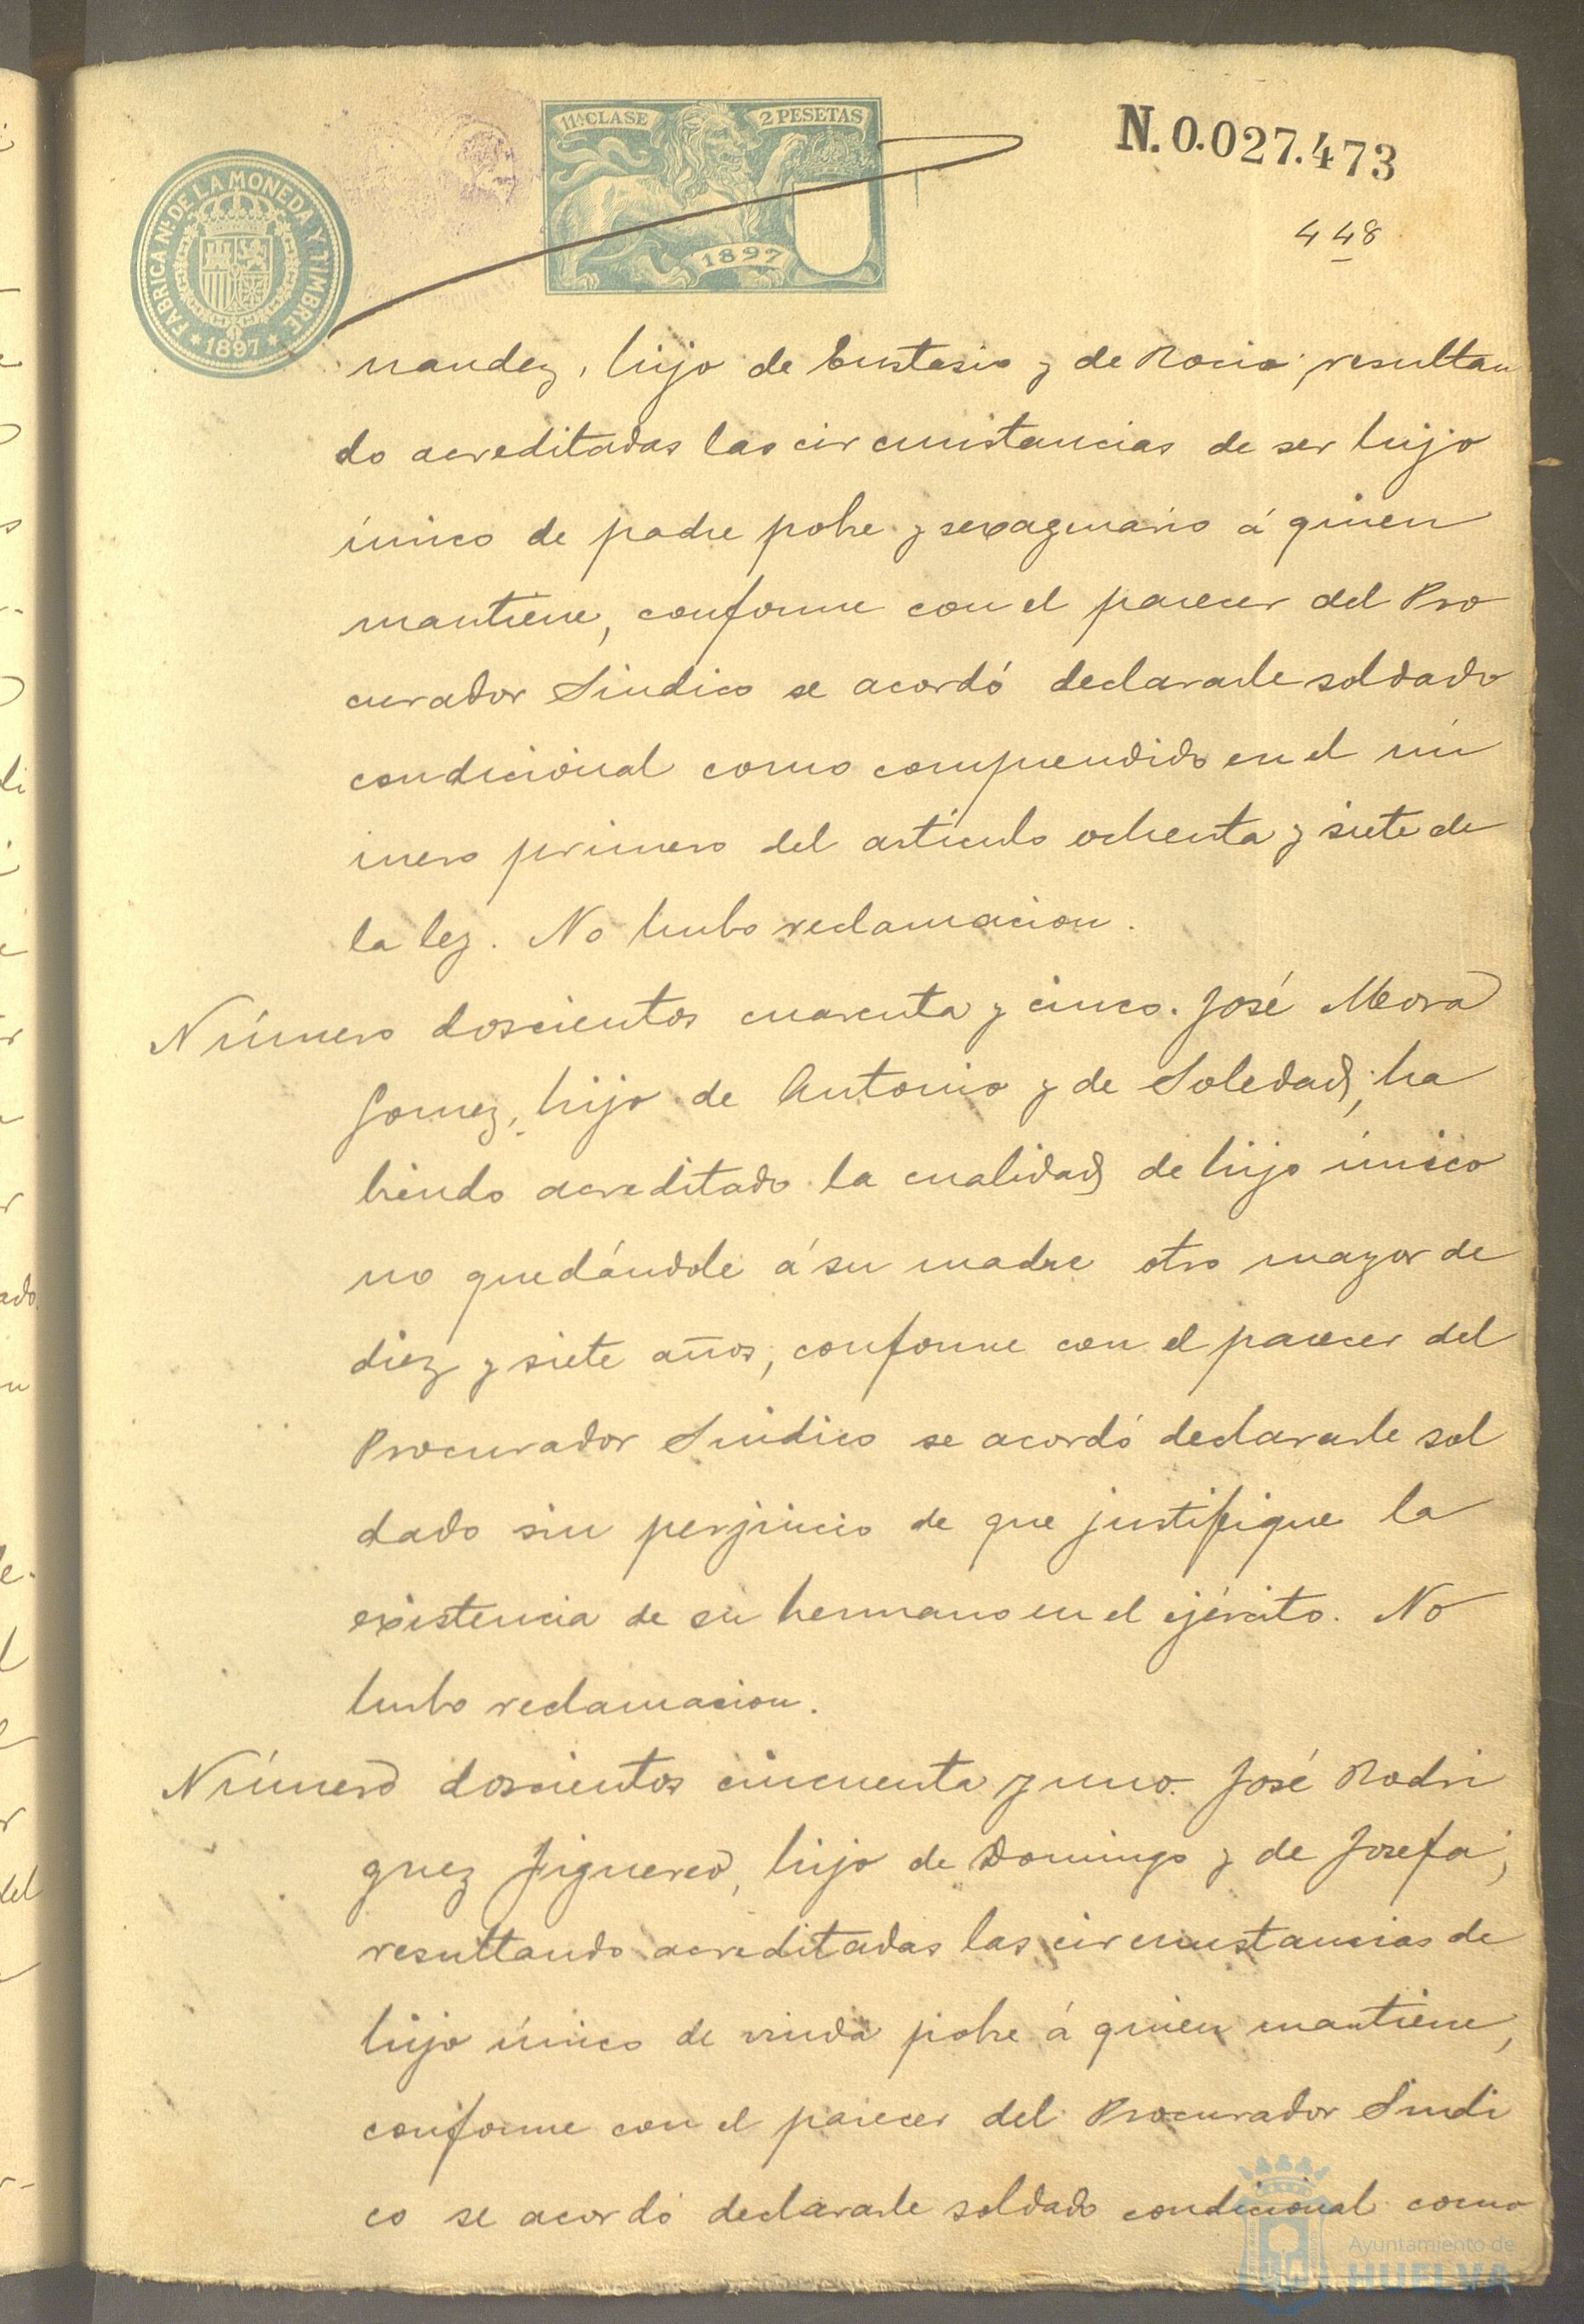 11ª CLASE
2 PESETAS
1897
FABRICA N.L DE LA MONEDA Y TIMBRE
* 1897 *
N.0.027.473
448
nandez, hijo de Eustasio y de Rocio; resultan
do acreditadas las circunstancias de ser hijo
único de padre pobre y sexagenario á quien
mantiene, conforme con el parecer del Pro
curador Sindico se acordó declararle soldado
condicional como comprendido en el nú
mero primero del articulo ochenta y siete de
la ley. No hubo reclamacion.
Número doscientos cuarenta y cinco. José Mora
Gomez, hijo de Antonio y de Soledad; ha
biendo acreditado la cualidad de hijo único
no quedándole á su madre otro mayor de
diez y siete años, conforme con el parecer del
Procurador Sindico se acordó declararle sol
dado sin perjuicio de que justifique la
existencia de su hermano en el ejército. No
hubo reclamacion.
Número doscientos cincuenta y uno. José Rodri
guez Figuereo, hijo de Domingo y de Josefa;
resultando acreditadas las circunstancias de
hijo único de viuda pobre á quien mantiene,
conforme con el parecer del Procurador Sindi
co se acordó declararle soldado condicional como
Ayuntamiento de
HUELVA